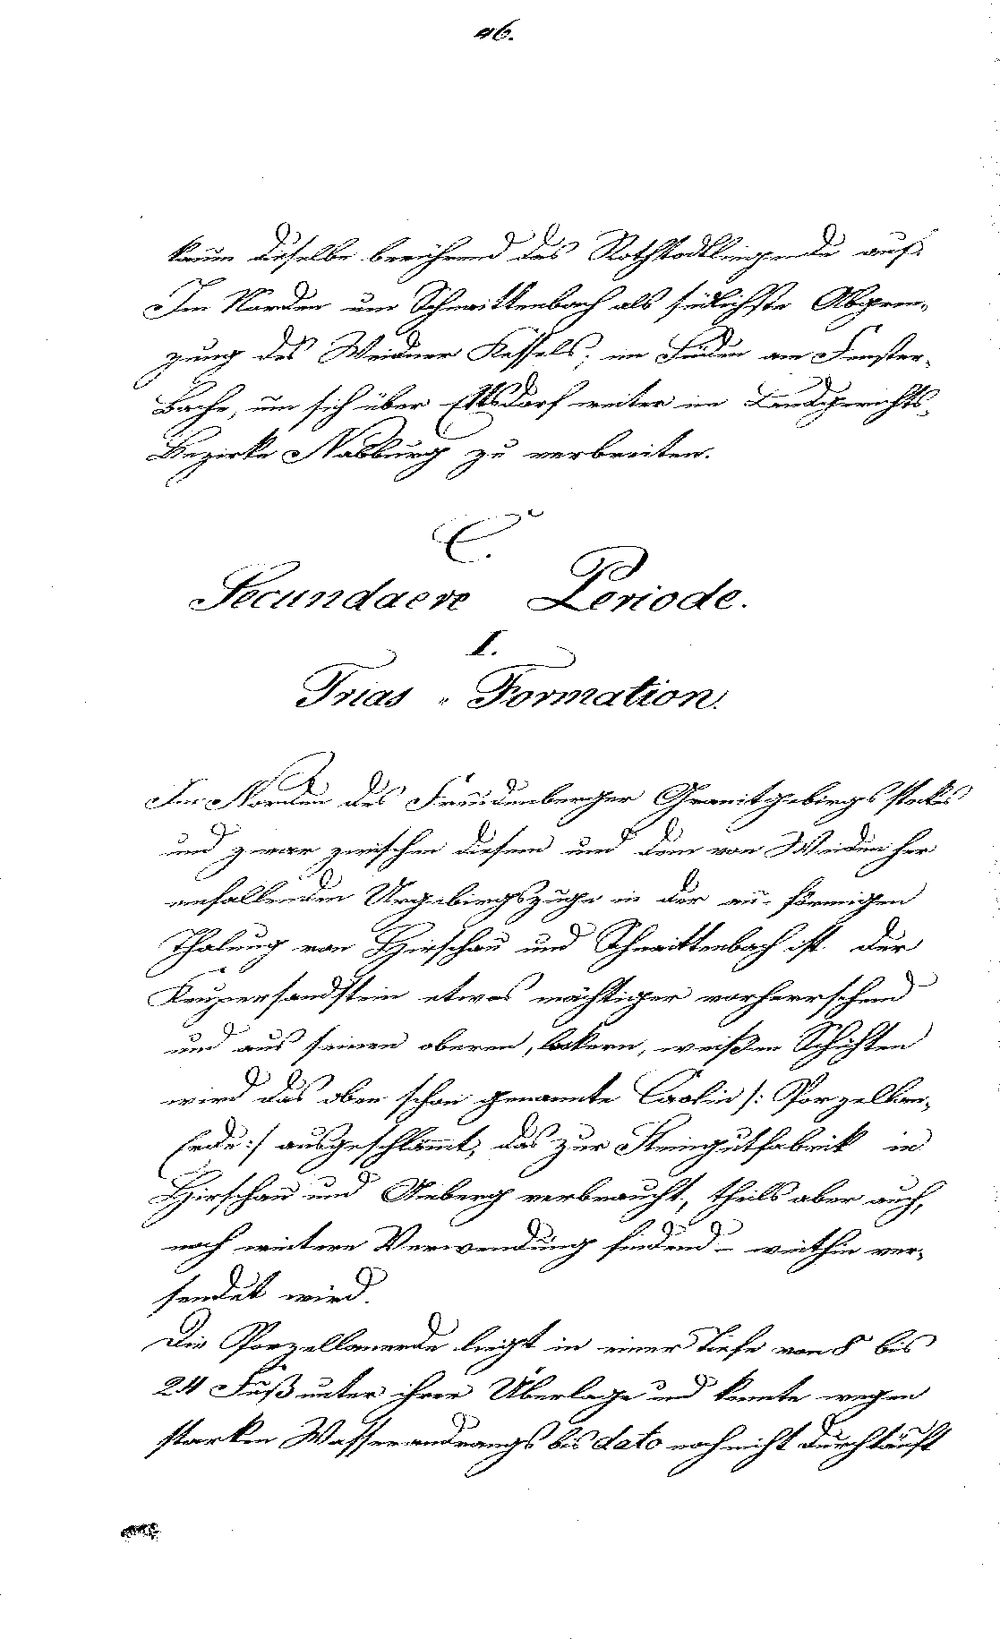 46.
kaum dieselbe berührend das Rothtodtliegende auf.
Im Norden um Schnaittenbach als südlichste Abgren-
zung des Weidner Kessels; im Süden am Fenster-
Bache, um sich über Ettsdorf weiter im Landgerichts-
Bezirke Nabburg zu verbreiten.
C.
Secundaere Periode.
I.
Trias - Formation.
Im Norden des Freudenberger Granitgebirgsstockes
und zwar zwischen diesem und dem von Weiden her
einfallenden Urgebirgszuge in der förmigen
Thalung von Hirschau und Schnaittenbach ist der
Keupersandstein etwas mächtiger vorherrschend
und aus seinen oberen, lockern, weißen Schichten
wird das oben schon genannte Caolin /: Porzellan-
Erde :/ ausgeschlämmt, das zur Steingutfabrik in
Hirschau und Amberg verbraucht, theils aber auch,
noch weitere Verwendung findend - weithin ver-
sendet wird.
Die Porzellanerde liegt in einer Tiefe von 8 bis
24 Fuß unter ihrer Überlage und konnte wegen
starken Wasserandrangs bis dato noch nicht durchtäuft